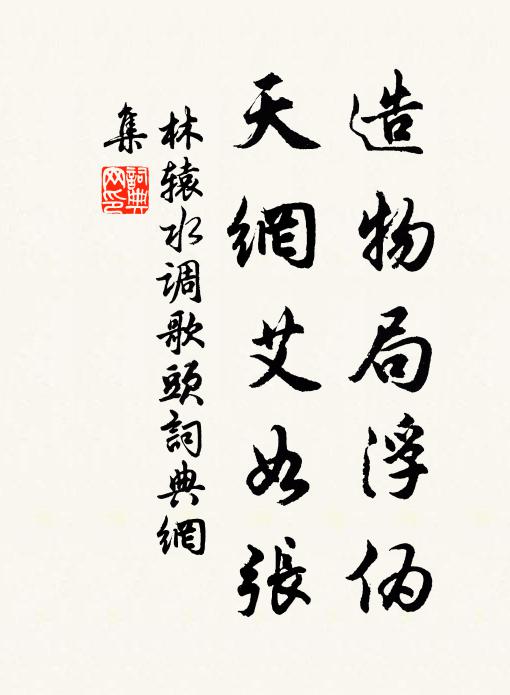 造物局浮伪
天網艾如張
林辕水调歌頭詞典網
集
詞典
网印